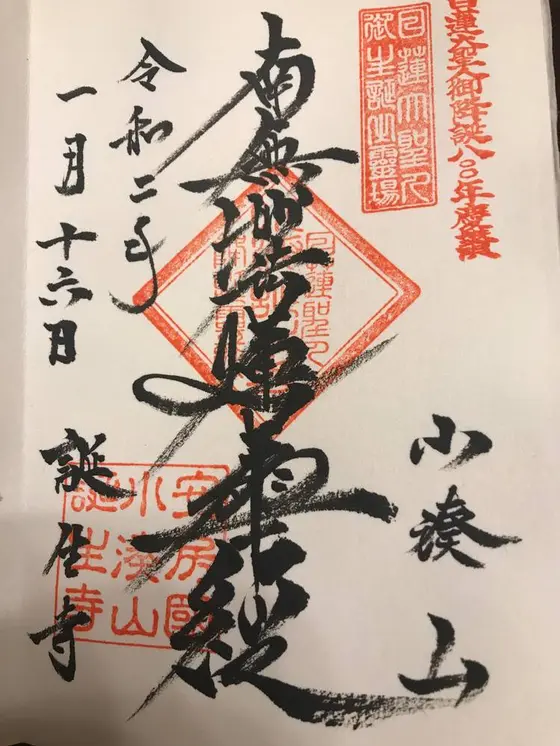 日蓮大聖人御降誕八〇〇年慶讃
日蓮大聖人
御生誕之霊場
小湊山
南無妙法蓮華経
日蓮聖人
安房國
小湊山
誕生寺
令和二年
一月十六日
誕生寺